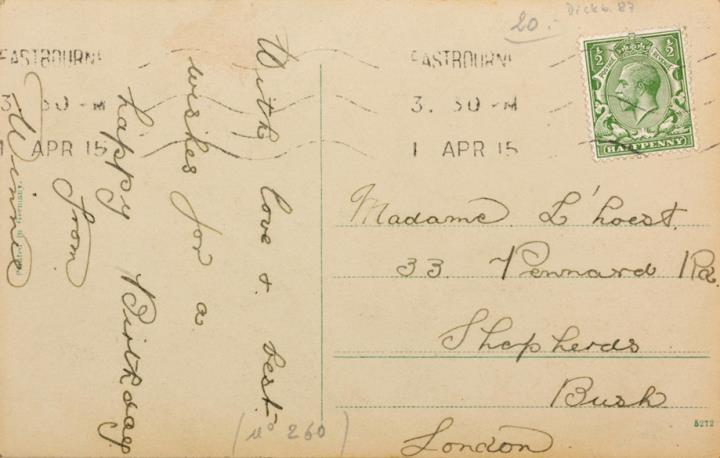 With love & best
wishes for a
happy Birthday
from
Winnie
Printed in Germany.
20.-
Dickb. 87
EASTBOURNE
3. 30 PM
1 APR 15
EASTBOURNE
3. 30 PM
1 APR 15
½ ½
POSTAGE REVENUE
HALFPENNY
Madame L'hoest.
33 Pennard Rd.
Shepherds
Bush
London
(no 260)
5212